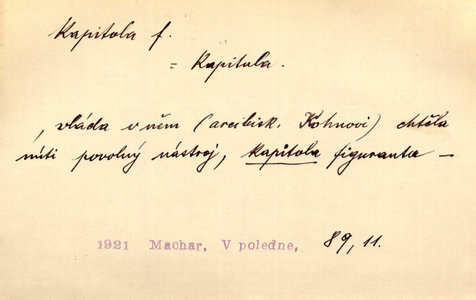 Kapitola f.
= Kapitula.
, vláda v něm (arcibisk. Kohnovi) chtěla
míti povolný nástroj, kapitola figuranta —
1921 Machar, V poledne, 89, 11.